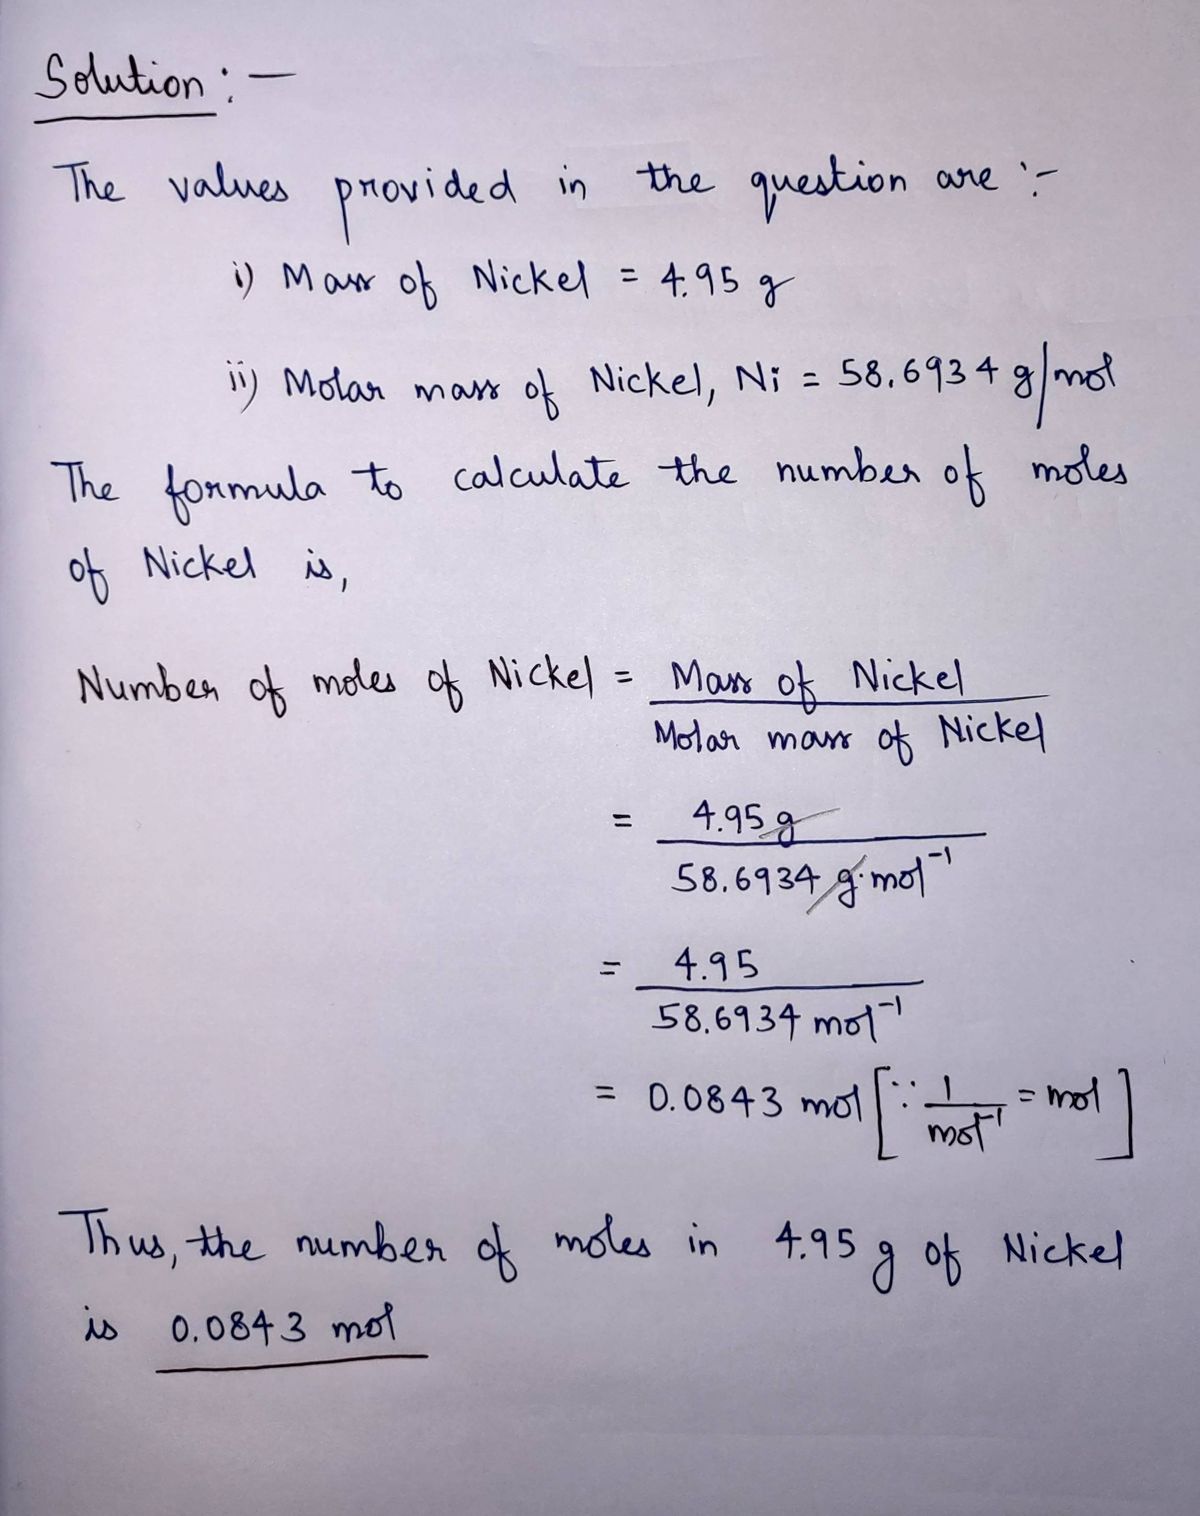 Solution :-
The values provided in the question are :-
i) Mass of Nickel = 4.95 g
ii) Molar mass of Nickel, Ni = 58.6934 g/mol
The formula to calculate the number of moles
of Nickel is,
Number of moles of Nickel = Mass of Nickel
Molar mass of Nickel
= 4.95 g
58.6934 g.mol⁻¹
= 4.95
58.6934 mol⁻¹
= 0.0843 mol [∵ 1/mol⁻¹ = mol]
Thus, the number of moles in 4.95 g of Nickel
is 0.0843 mol